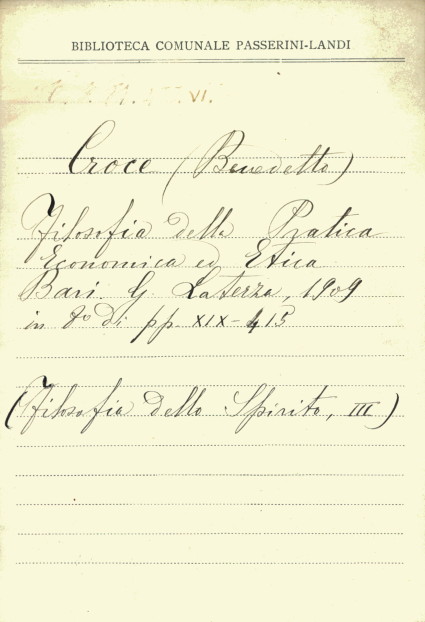 BIBLIOTECA COMUNALE PASSERINI-LANDI
VI.
Croce (Benedetto)
Filosofia della Pratica
Economica ed Etica
Bari. G. Laterza, 1909
in 8º di pp. XIX-415
(Filosofia dello Spirito, III)